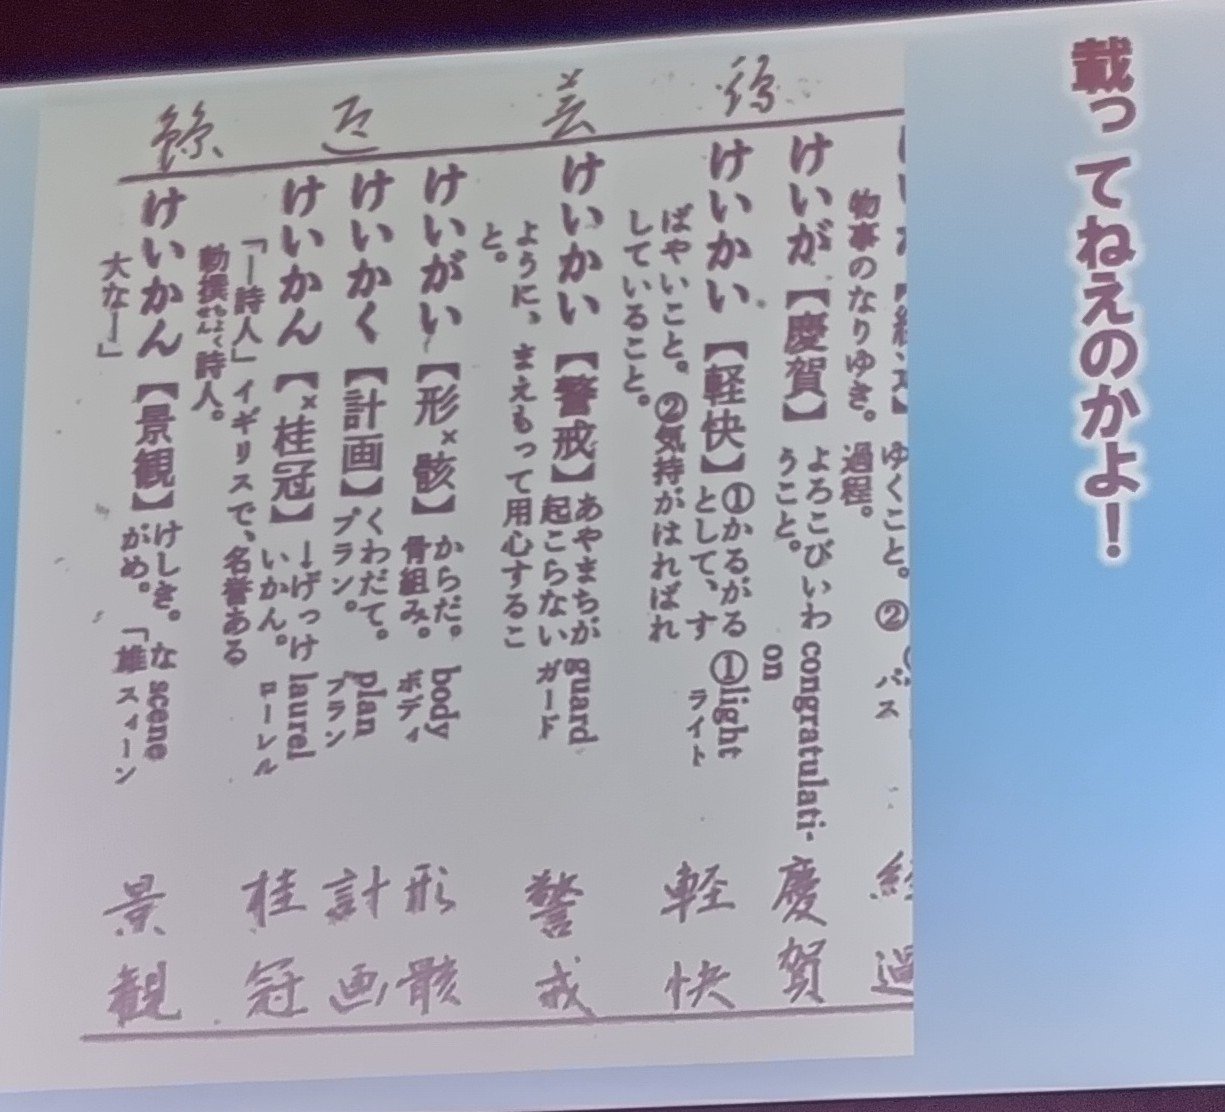 載ってねえのかよ！
ゆくこと。②
パス
物事のなりゆき。過程。
けいが【慶賀】よろこびいわ
うこと。
congratulati-
on
けいかい【軽快】①かるがる
として、す
ばやいこと。②気持がはればれ
していること。
①light
ライト
けいかい【警戒】あやまちが
起こらない
ように、まえもって用心するこ
と。
guard
ガード
けいがい【形×骸】からだ。
骨組み。
body
ボディ
けいかく【計画】くわだて。
プラン。
plan
プラン
けいかん【×桂冠】→げっけ
いかん。
「―詩人」イギリスで、名誉ある
勅撰ちょくせん詩人。
laurel
ローレル
けいかん【景観】けしき。な
がめ。「雄
大な―」
scene
スィーン
経過
慶賀
軽快
警戒
形骸
計画
桂冠
景観